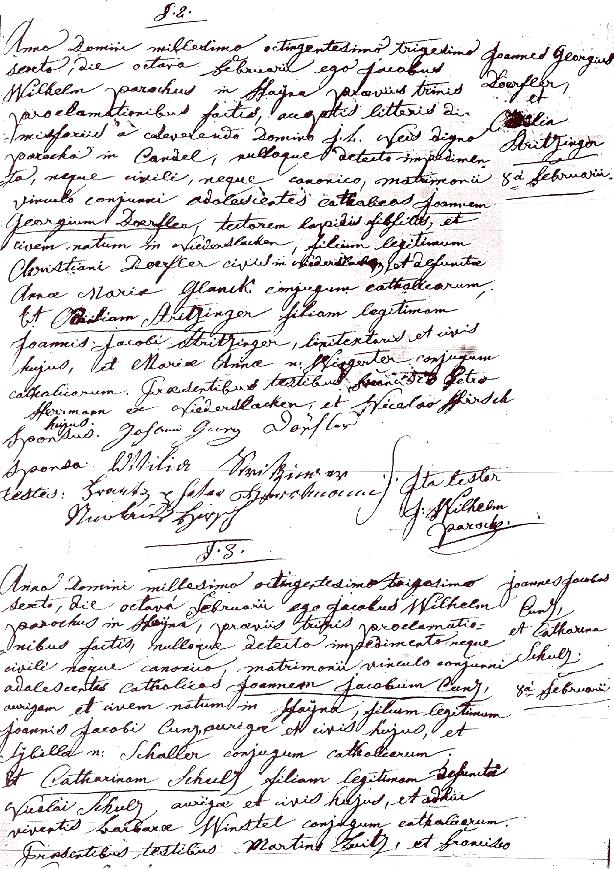 §. 2.
Anno Domini millesimo octingentesimo trigesimo
sexto, die octava Februarii ego Jacobus
Wilhelm parochus in Hayna prævius trinis
proclamationibus factis, acceptis litteris di-
missoriis à reverendo Domino J. L. Weis digno
parocho in Candel, nulloque detecto impedimen-
to, neque civili, neque canonico, matrimonii
vinculo conjunxi adolescentes catholicos Joannem
Georgium Doerfler, tectorem lapidis et
civem natum in Niederslacken, filium legitimum
Christiani Doerfler civis in et defunctæ
Annæ Mariæ Glanck conjugum catholicorum,
Et Stritzinger filiam legitimam
Joannis Jacobi Stritzinger, et civis
hujus, et Mariæ Annæ n: Wingerter conjugum
catholicorum. Præsentibus testibus Petro
Herrmann ex Niederslacken, et Nicolao Hirsch
hujus.
Sponsus. Johann Georg Dörfler
Sponsa
testes:
Ita testor
J. Wilhelm
parochs.
Joannes Georgius
Doerfler,
et
Stritzinger
8a Februarii.
§. 3.
Anno Domini millesimo octingentesimo trigesimo
sexto, die octava Februarii ego Jacobus Wilhelm
parochus in Hayna, præviis trinis proclamatio-
nibus factis, nulloque detecto impedimento neque
civili neque canonico, matrimonii vinculo conjunxi
adolescentes catholicos Joannem Jacobum Cunz,
aurigam et civem natum in Hayna, filium legitimum
Joannis Jacobi Cunz, aurigæ et civis hujus, et
Sybilla n: Schaller conjugum catholicorum.
Et Catharinam Schulz filiam legitimam defuncti
Nicolai Schulz, aurigæ et civis hujus, et adhuc
viventis Barbaræ Winstel conjugum catholicorum.
Præsentibus testibus Martino et Francisco
Joannes Jacobus
Cunz,
et Catharina
Schulz.
8a Februarii